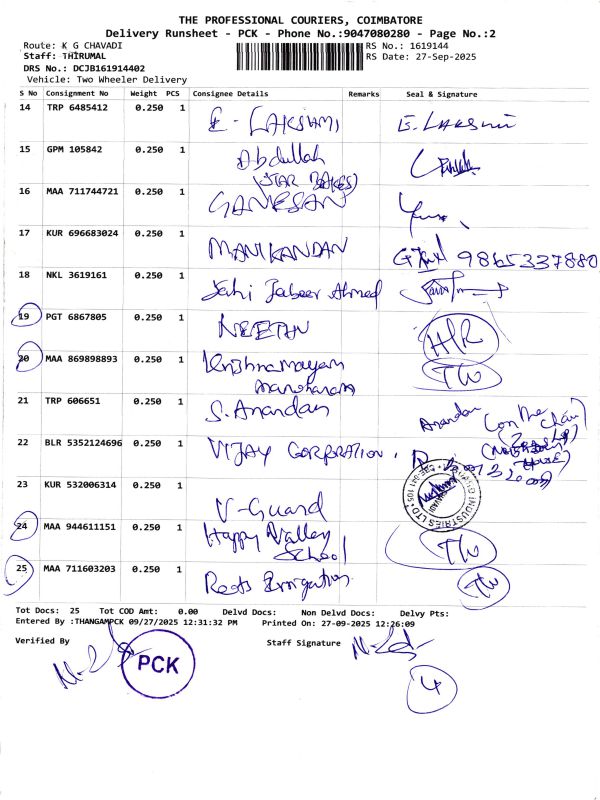 THE PROFESSIONAL COURIERS, COIMBATORE
Delivery Runsheet - PCK - Phone No.:9047080280 - Page No.:2
Route: K G CHAVADI RS No.: 1619144
Staff: THIRUMAL RS Date: 27-Sep-2025
DRS No.: DCJB161914402
Vehicle: Two Wheeler Delivery
S No Consignment No Weight PCS Consignee Details Remarks Seal & Signature
14 TRP 6485412 0.250 1 E - LAKSHMI E. LAKSHMI
15 GPM 105842 0.250 1 Abdullah
(STAR BAKES)
16 MAA 711744721 0.250 1 GANESAN
17 KUR 696683024 0.250 1 MANIKANDAN 9865337880
18 NKL 3619161 0.250 1 Jabeer Ahmed
19 PGT 6867805 0.250 1 H/R
20 MAA 869898893 0.250 1 TW
21 TRP 606651 0.250 1 S. Anandan Anandan
22 BLR 5352124696 0.250 1 VIJAY CORPORATION.
23 KUR 532006314 0.250 1 V-Guard
24 MAA 944611151 0.250 1 Happy Valley TW
School
25 MAA 711603203 0.250 1 Roots TW
Tot Docs: 25 Tot COD Amt: 0.00 Delvd Docs: Non Delvd Docs: Delvy Pts:
Entered By :THANGAMPCK 09/27/2025 12:31:32 PM Printed On: 27-09-2025 12:26:09
Verified By Staff Signature
PCK
4